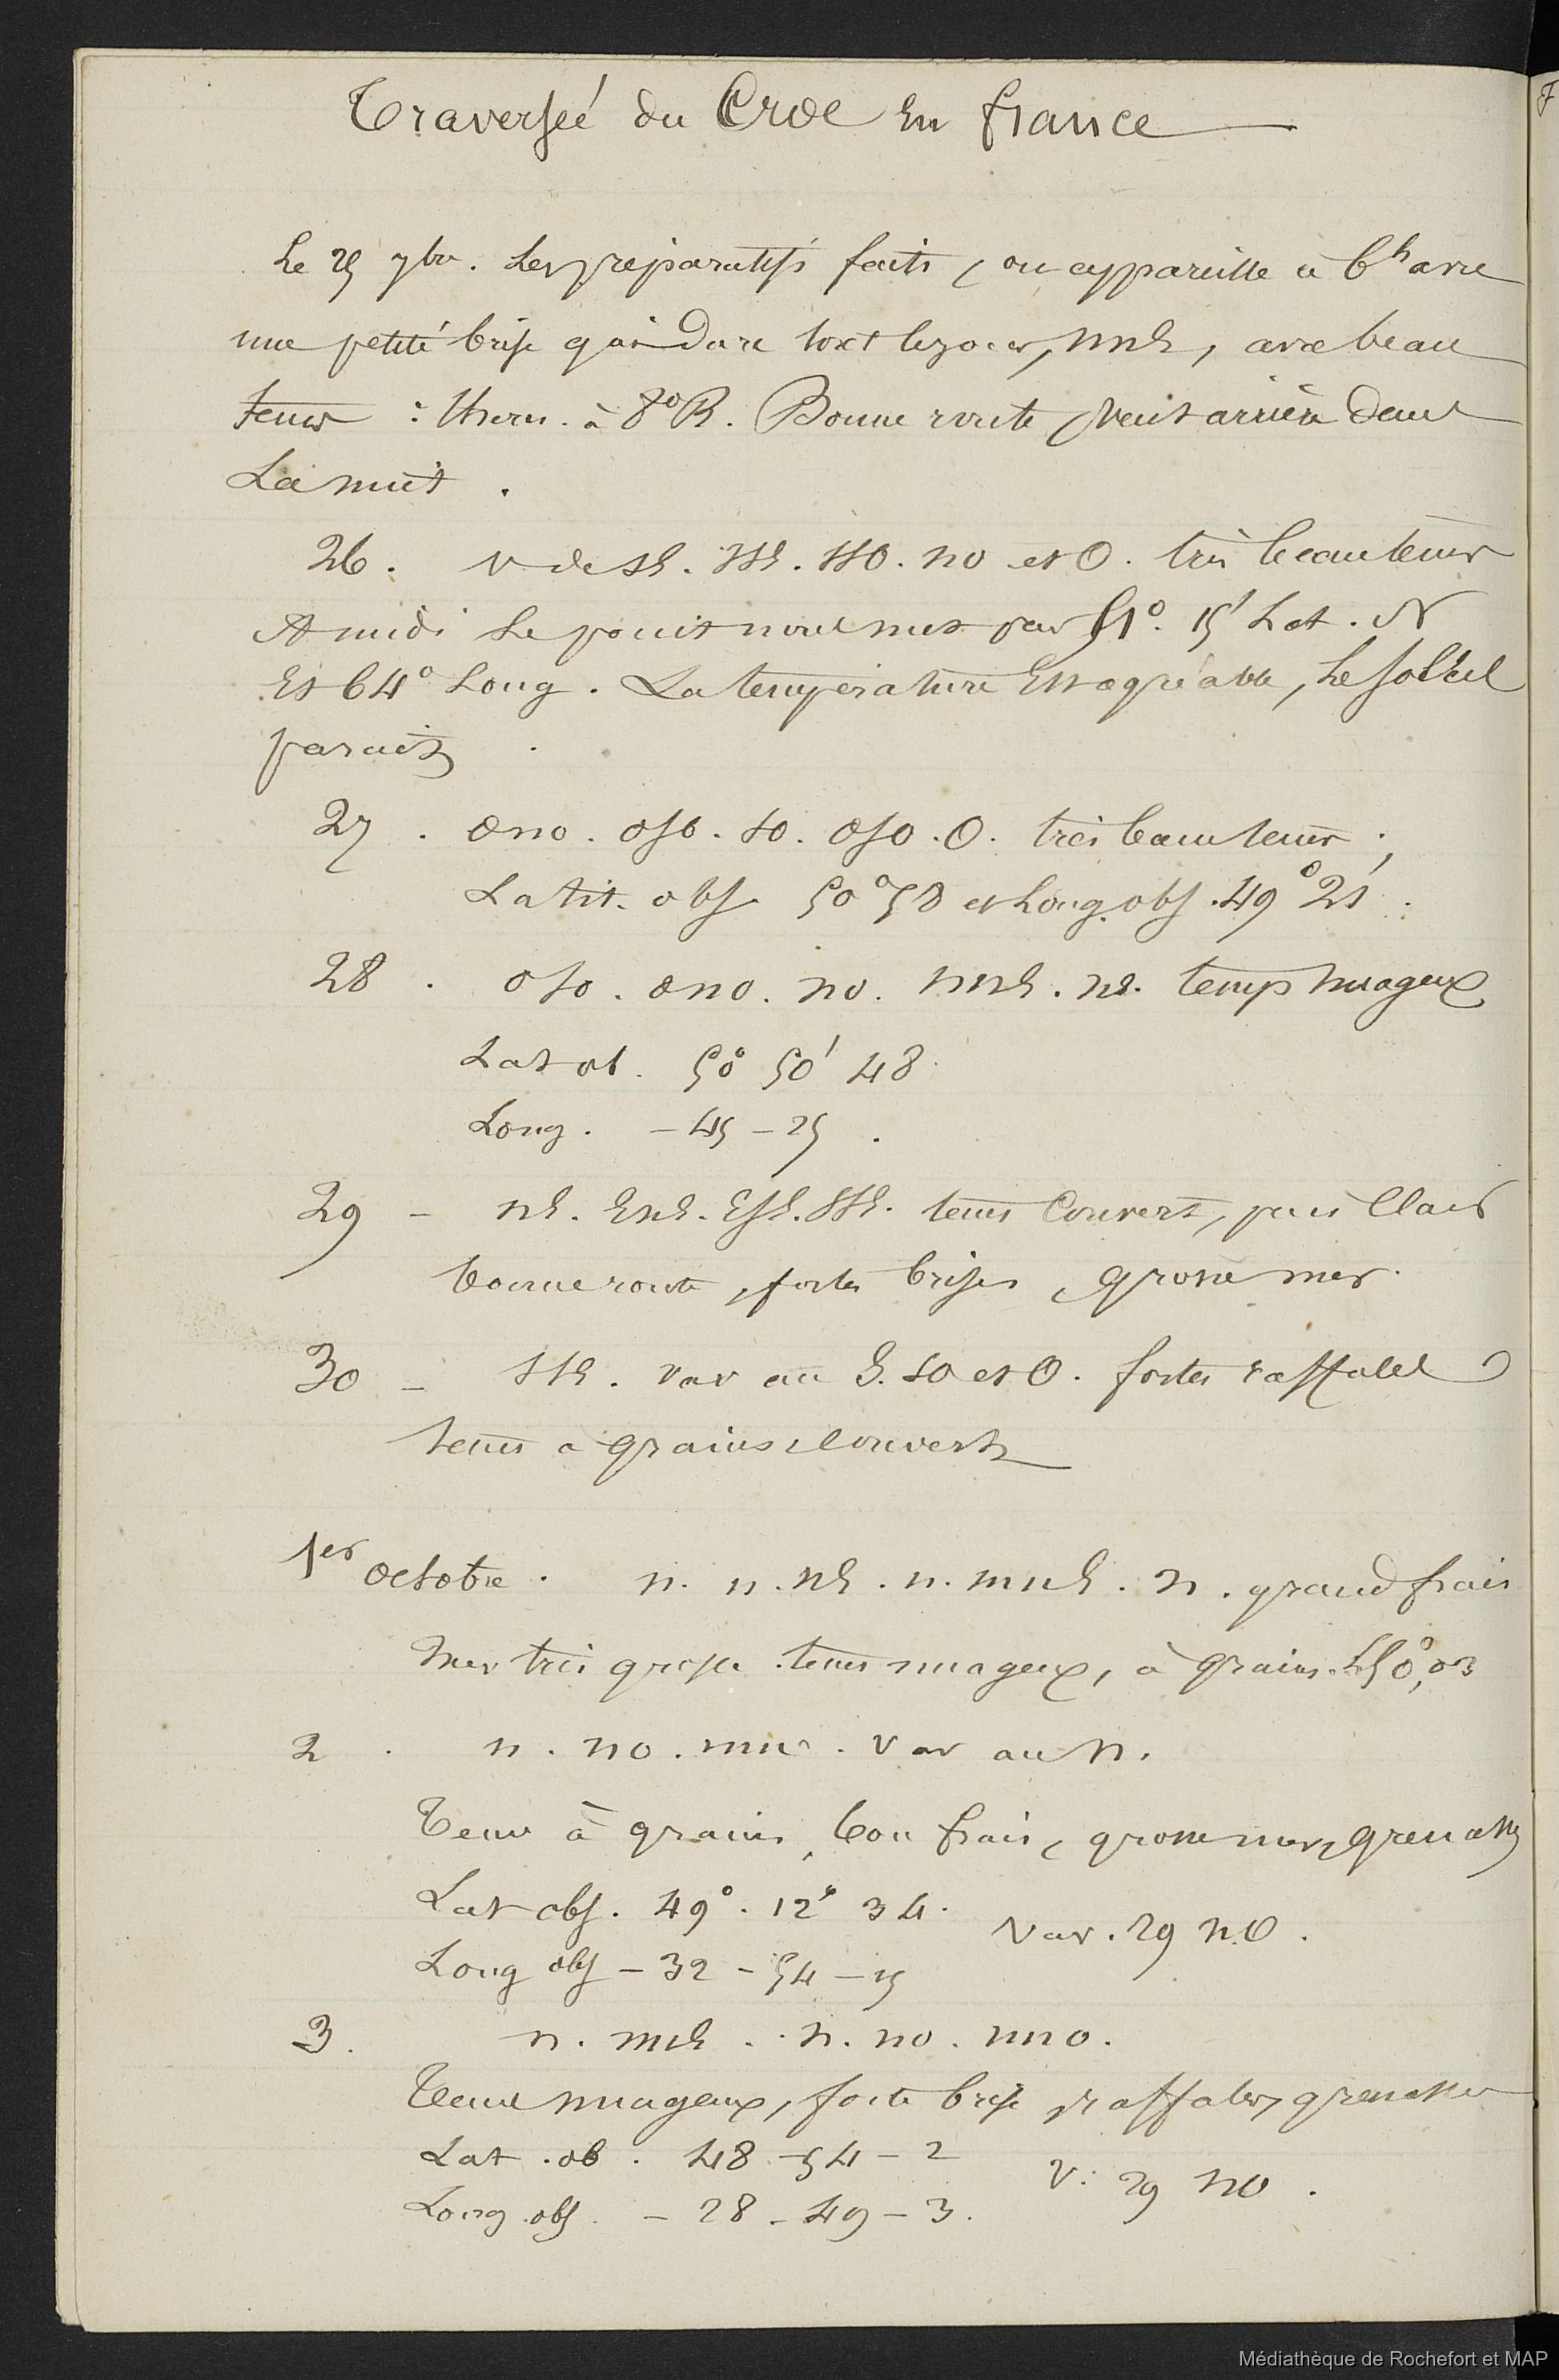 Traversée du Croc En france
Le 25 7bre. Les préparatifs faits, on appareille à 6h avec
une petite brise qui dure tout le jour, nnE, avec beau
tems : therm. à 8° R. Bonne route, vent arrière dans
La nuit.
26. v de SE. SSE. SSO. NO et O. très beau tems
A midi le point nous met par 51°. 15' Lat. N
Et 64° Long. La température Est agréable, le soleil
parait.
27. ono. oso. so. oso. O. très beau tems ;
Latit. obs. 50° 58 et Long. obs. 49° 21'.
28. oso. ono. no. nnE. nE. temps nuageux
Lat ob. 50° 50' 48
Long. - 45 - 25.
29 - nE. EnE. EsE. SSE. tems Couvert, puis Clair
bonne route, fortes brises, grosse mer.
30 - SSE. var au S. SO et O. fortes raffales
tems à grains, couvert
1er octobre. n. n. nE. n. nnE. n. grand frais
Mer très grosse. tems nuageux, à grains. L 50°,03
2. n. no. nno. var au n.
Tems à grains, bon frais, grosse mer, grenasse
Lat obs. 49°. 12' 34.
Var. 29 n.O.
Long obs - 32 - 54 - 15
3. n. nnE. n. no. nno.
Tems nuageux, forte brise, raffales, grenasses
Lat. ob. 48 - 54 - 2
V: 29 no.
Long. obs. - 28 - 49 - 3.
Médiathèque de Rochefort et MAP